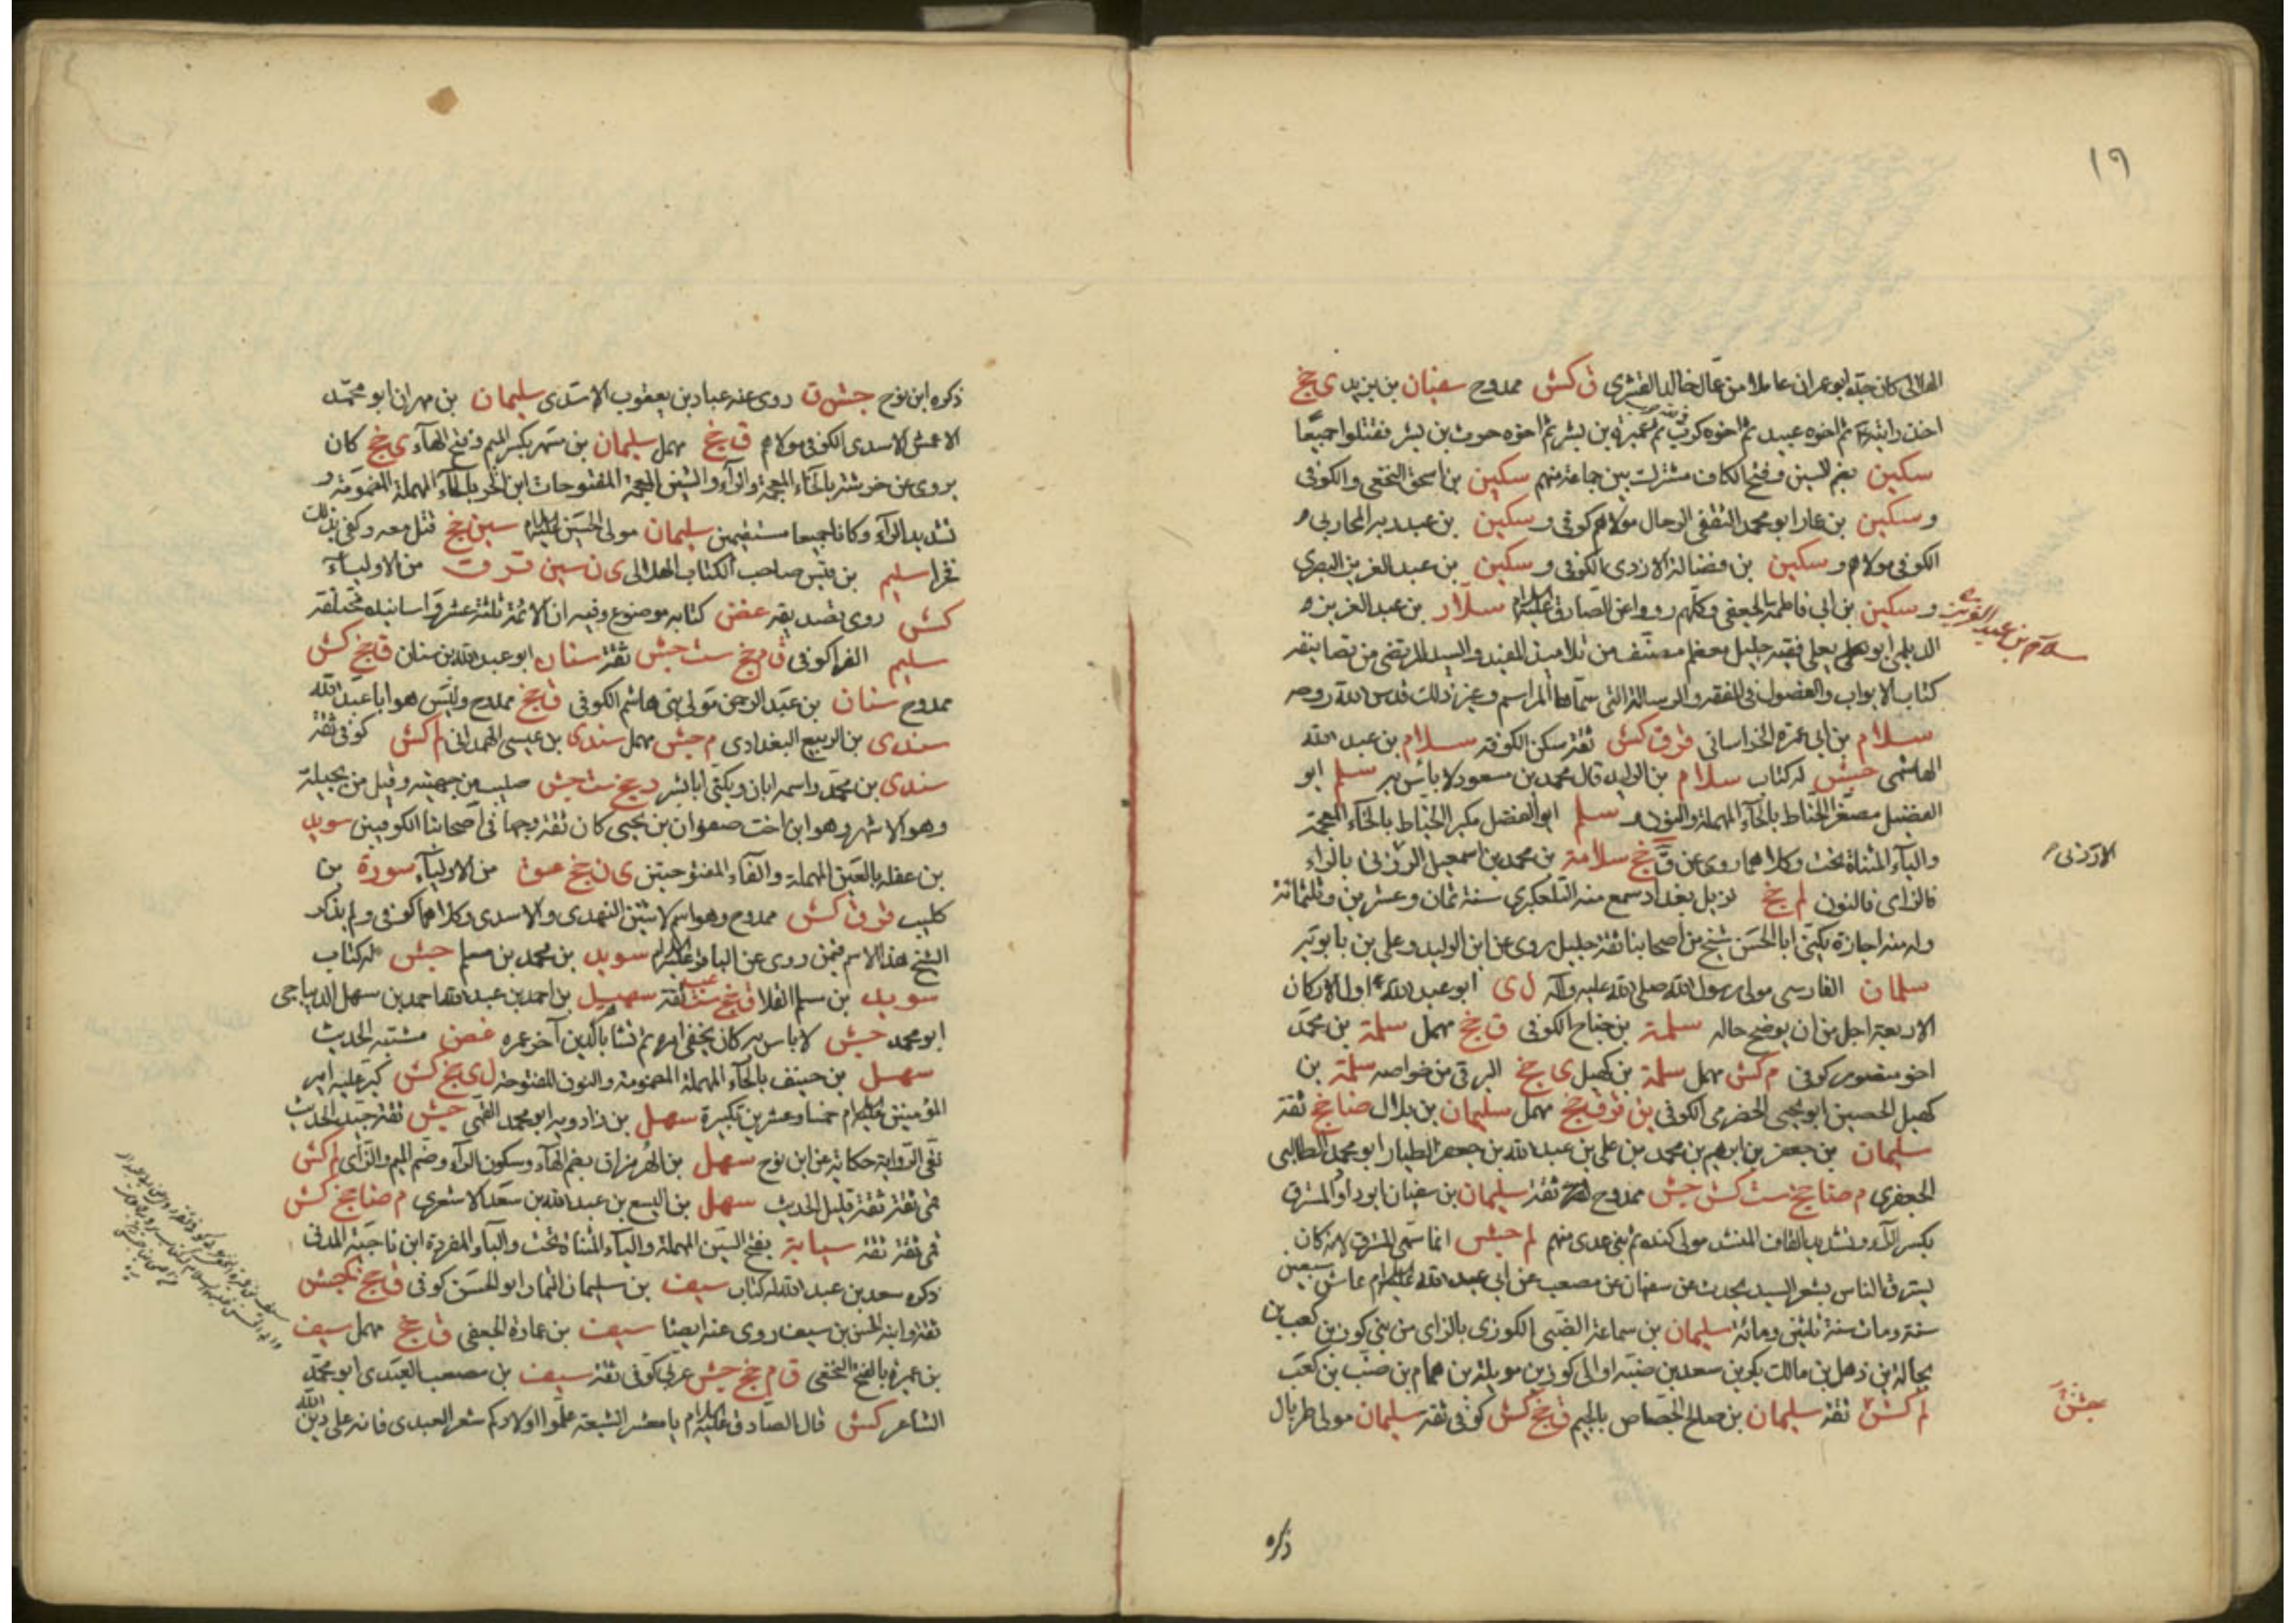 ١٩
الهلالي كان جده ابو عمران عاملا من عمال خالد القشري ق كش ممدوح سفيان بن يزيد ى جخ
اخذ رايته ثم اخوه عبيد ثم اخوه كرب ثم عميرة بن بشر ثم اخوه حرث بن بشر فقتلوا جميعا
سكين بضم السين وفتح الكاف مشترك بين جماعة منهم سكين بن اسحق النخعي والكوفي
و سكين بن عمار ابو محمد الثقفي الرحال مولاهم كوفي و سكين بن عبد ربه المحاربي
الكوفي مولاهم و سكين بن فضالة الازدي الكوفي و سكين بن عبد العزيز البصري
و سكين بن ابي فاطمة الجعفي وكلهم رووا عن الصادق عليه السلام سلار بن عبد العزيز
سلار بن عبد العزيز
الديلمي ابو يعلى فقيه جليل معظم مصنف من تلاميذ المفيد والسيد المرتضى من تصانيفه
كتاب الابواب والفصول في الفقه والرسالة التي سماها المراسم وغير ذلك قدس الله روحه
سلام بن ابي عمرة الخراساني قر ق كش ثقة سكن الكوفة سلام بن عبد الله
الهاشمي جش له كتاب سلام بن الوليد قال محمد بن مسعود لا باس به سلم ابو
الفضيل مصغر الحناط بالحاء المهملة والنون و سلم ابو الفضل مكبر الخياط بالخاء المعجمة
والياء المثناة تحت وكلاهما روى عن ق جخ سلامة بن محمد بن اسمعيل الرزني بالراء
الارزني
فالزاي فالنون لم جخ نزيل بغداد سمع منه التلعكبري سنة ثمان وعشرين وثلثمائة
وله منه اجازة يكنى ابا الحسن شيخ من اصحابنا ثقة جليل روى عن ابن الوليد وعلي بن بابويه
سلمان الفارسي مولى رسول الله صلى الله عليه وآله ل ى ابو عبد الله اول الاركان
الاربعة اجل من ان يوضح حاله سلمة بن جناح الكوفي ق جخ مهمل سلمة بن محمد
اخو منصور كوفي م كش مهمل سلمة بن كهيل ى جخ البرقي من خواصه سلمة بن
كهيل الحصين ابو يحيى الحضرمي الكوفي ين قر ق جخ مهمل سليمان بن بلال ضا جخ ثقة
سليمان بن جعفر بن ابرهيم بن محمد بن علي بن عبد الله بن جعفر الطيار ابو محمد الطالبي
الجعفري م ضا جخ ست كش جش ممدوح ثقة سليمان بن سفيان ابو داود المسترق
بكسر الراء وتشديد القاف المنشد مولى كندة ثم بني عدي منهم لم جش انما سمي المسترق لانه كان
يسترق الناس بشعر السيد يحدث عن سفيان عن مصعب عن ابي عبد الله عليه السلام عاش سبعين
سنة ومات سنة ثلثين ومائة سليمان بن سماعة الضبي الكوزي بالزاي من بني كوز بن كعب بن
بجالة بن ذهل بن مالك بكر بن سعد بن ضبة او الى كوز بن موئلة بن همام بن ضب بن كعب
لم كش ثقة سليمان بن صالح الجصاص بالجيم ق جخ كش كوفي ثقة سليمان مولى طربال
جش
ذكره
ذكره ابن نوح جش ق روى عنه عباد بن يعقوب الاسدي سليمان بن مهران ابو محمد
الاعمش الاسدي الكوفي مولاهم ق جخ مهمل سليمان بن مسهر بكسر الميم وفتح الهاء ى جخ كان
يروي عن خرشة بالخاء المعجمة والراء والشين المعجمة المفتوحات ابن الحر بالحاء المهملة المضمومة و
تشديد الراء وكانا جميعا مستقيمين سليمان مولى الحسين عليه السلام سين جخ قتل معه وكفى بذلك
فخرا سليم بن قيس صاحب الكتاب الهلالي ى ن سين قر ق من الاولياء
كش روى تصديقه غض كتابه موضوع وفيه ان الائمة ثلثة عشر واسانيده مختلفة
سليم الفرا كوفي ق م جخ ست جش ثقة سنان ابو عبد الله بن سنان ق جخ كش
ممدوح سنان بن عبد الرحمن مولى بني هاشم الكوفي ق جخ ممدوح وليس هو ابا عبد الله
سندى بن الربيع البغدادي م جش مهمل سندى بن عيسى الهمداني لم كش كوفي ثقة
سندى بن محمد واسمه ابان ويكنى ابا بشر د جخ ست جش صليب من جهينة وقيل من بجيلة
وهو الاشهر وهو ابن اخت صفوان بن يحيى كان ثقة وجها في اصحابنا الكوفيين سويد
بن غفلة بالغين المهملة والفاء المفتوحتين ى ن جخ عق من الاولياء سورة بن
كليب قر ق كش ممدوح وهو اسم لاثنين النهدي والاسدي وكلاهما كوفي ولم يذكر
الشيخ هذا الاسم فيمن روى عن الباقر عليه السلام سويد بن محمد بن مسلم جش له كتاب
سويد بن سلم القلا ق جخ ست ثقة سهيل بن احمد بن عبد الله احمد بن سهل الديباجي
ابو محمد جش لا باس به كان يخفي امره ثم تشاباكدين آخر عمره غض مشتبه الحديث
سهل بن حنيف بالحاء المهملة المضمومة والنون المفتوحة ل ى جخ كش كبر عليه امير
المؤمنين عليه السلام خمسا وعشرين تكبيرة سهل بن زادويه ابو محمد القمي جش ثقة جيد الحديث
نقي الرواية حكاية عن ابن نوح سهل بن الهرمزان بضم الهاء وسكون الراء وضم الميم والزاي لم كش
قمي ثقة ثقة قليل الحديث سهل بن اليسع بن عبد الله بن سعد الاشعري م ضا جخ كش
قمي ثقة ثقة سيابة بفتح السين المهملة والياء المثناة تحت والباء المفردة ابن ناجية المدني
ذكره سعد بن عبد الله له كتاب سيف بن سليمان التمار ابو الحسن كوفي ق جخ كجش
ثقة وابنه الحسن بن سيف روى عنه ايضا سيف بن عمارة الجعفي ق جخ مهمل سيف
بن عميرة بالفتح النخعي ق م جخ جش عربي كوفي ثقة سيف بن مصعب العبدي ابو محمد
الشاعر كش قال الصادق عليه السلام يا معشر الشيعة علموا اولادكم شعر العبدي فانه على دين الله